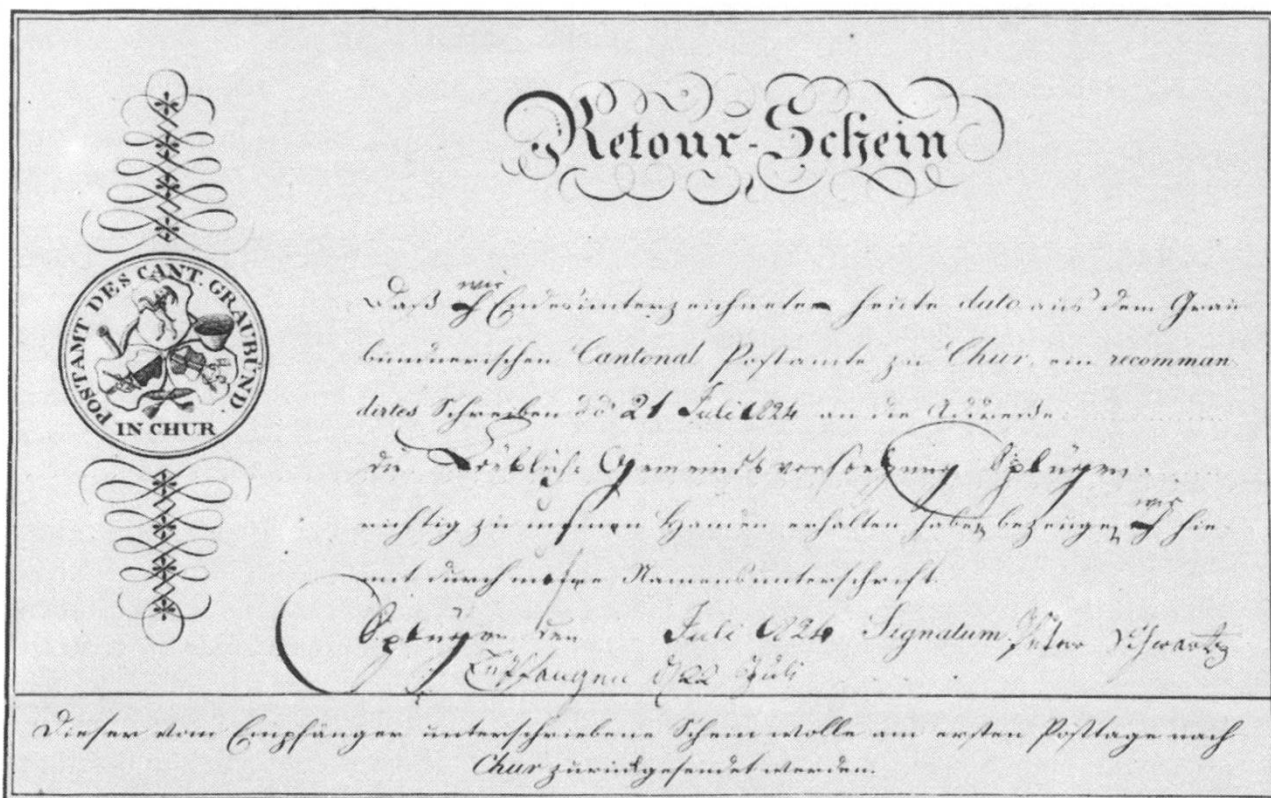 Retour-Schein
POSTAMT DES CANT. GRAUBÜND.
IN CHUR
wir
Daß Endesunterzeichneten heute dato aus dem Grau
bündnerischen Cantonal Postamte zu Chur, ein recomman
dirtes Schreiben dd 21 Juli 1824 an die Addresse:
die Löbliche Gemeindsvorsetzung Splügen.
wir
richtig zu Handen erhalten haben bezeugen hie
mit durch Namensunterschrift.
Splügen den Juli 1824 Signatum. Peter Schwartz
Empfangen d 22 Juli
Dieser vom Empfänger unterschriebene Schein wolle am ersten Posttage nach
Chur zurückgesendet werden.